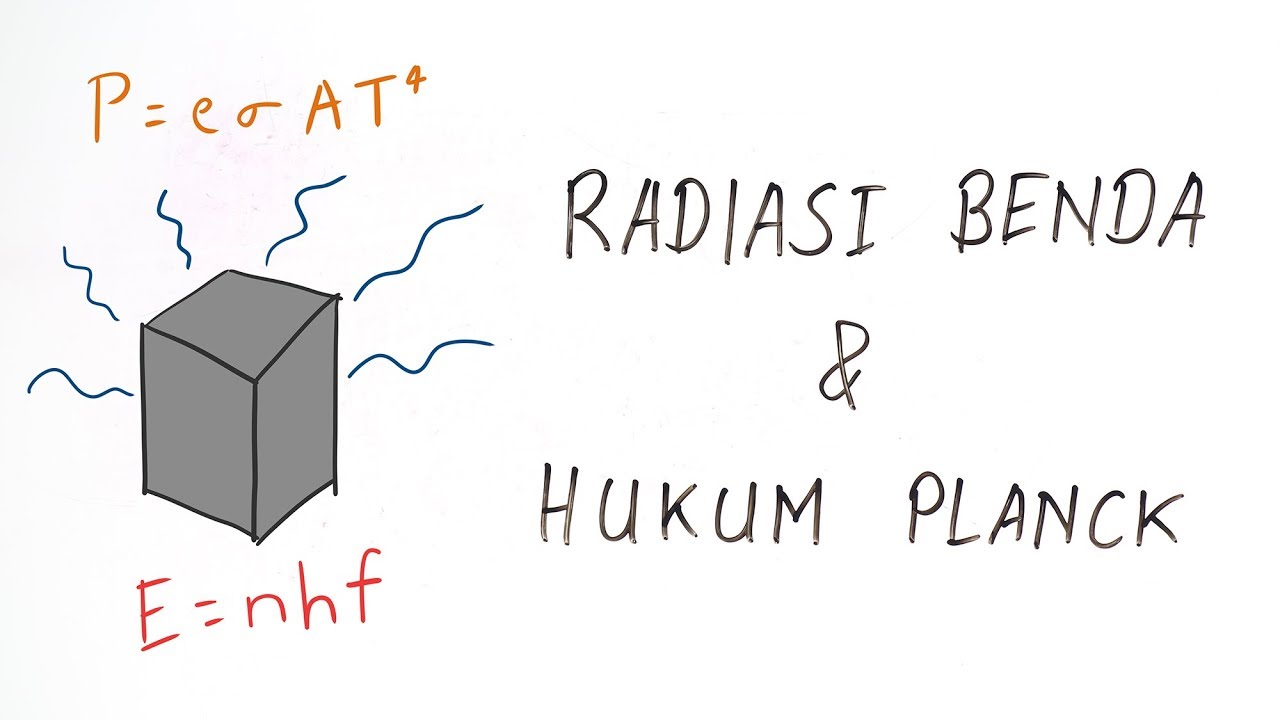 P = e σ A T⁴
RADIASI BENDA
&
HUKUM PLANCK
E = nhf